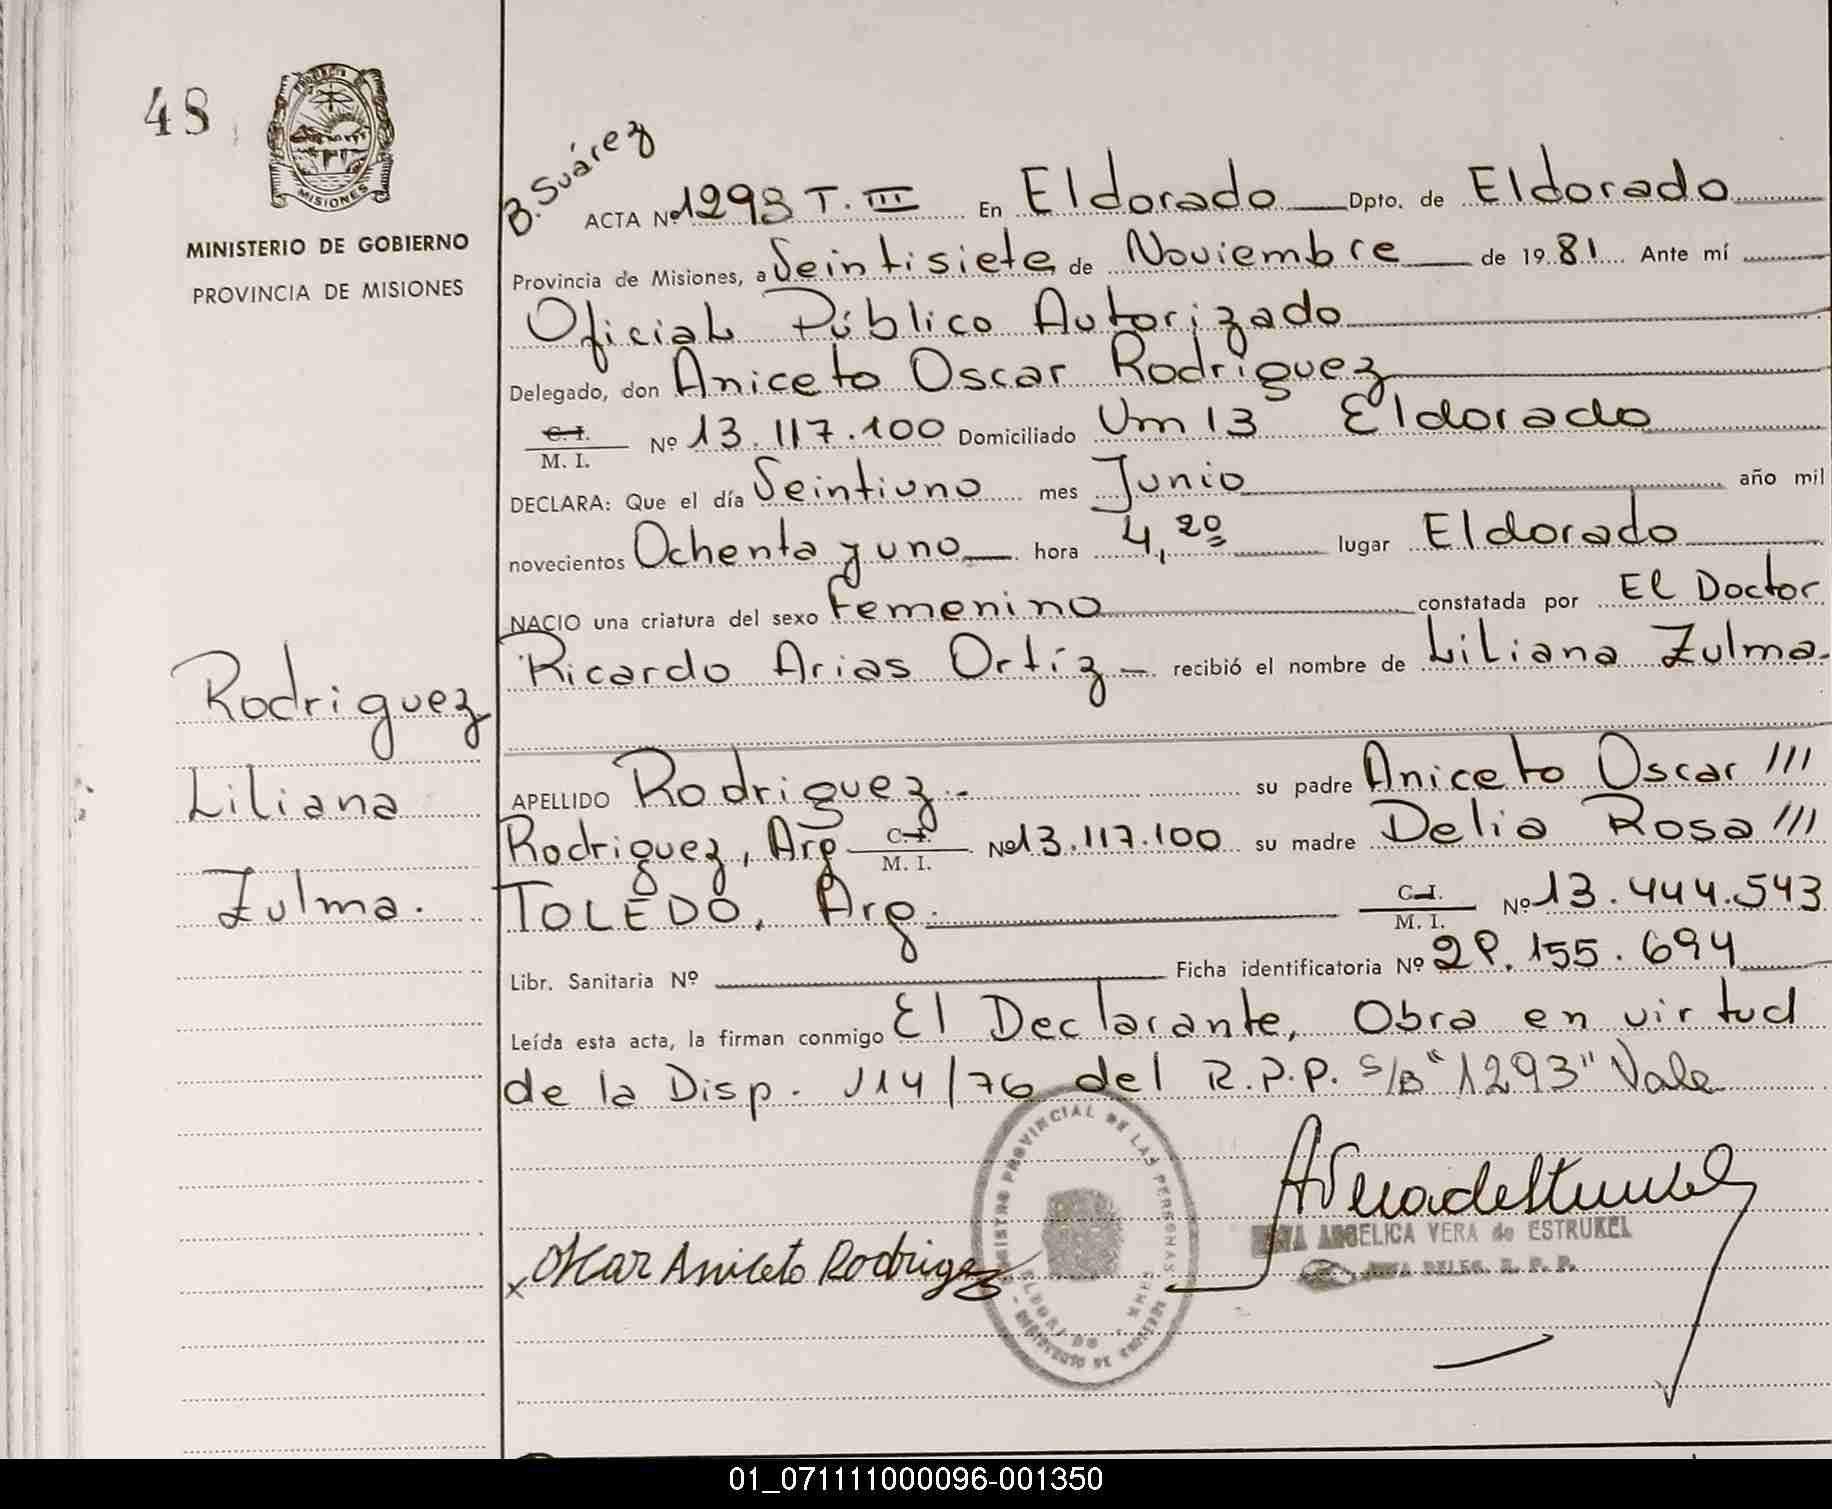 48
PROVINCIA
MISIONES
MINISTERIO DE GOBIERNO
PROVINCIA DE MISIONES
B. Suárez
ACTA Nº 1293 T. III En Eldorado Dpto. de Eldorado
Provincia de Misiones, a Veintisiete de Noviembre de 1981 Ante mí
Oficial Público Autorizado
Delegado, don Aniceto Oscar Rodriguez
C. I. M. I. Nº 13.117.100 Domiciliado Km 13 Eldorado
DECLARA: Que el día Veintiuno mes Junio año mil
novecientos Ochenta y uno hora 4,20 lugar Eldorado
NACIO una criatura del sexo Femenino constatada por El Doctor
Ricardo Arias Ortíz – recibió el nombre de Liliana Zulma.
Rodriguez
Liliana
Zulma.
APELLIDO Rodriguez.- su padre Aniceto Oscar ///
Rodriguez, Arg C. I. M. I. Nº 13.117.100 su madre Delia Rosa ///
TOLEDO, Arg. C. I. M. I. Nº 13.444.543
Libr. Sanitaria Nº Ficha identificatoria Nº 28.155.694
Leída esta acta, la firman conmigo El Declarante, Obra en virtud
de la Disp. 114/76 del R.P.P. S/B "1293" Vale
x Oscar Aniceto Rodriguez
REGISTRO PROVINCIAL DE LAS PERSONAS
ELDORADO
ANGELICA VERA de ESTRUKEL
JEFA DELEG. R. P. P.
01_071111000096-001350